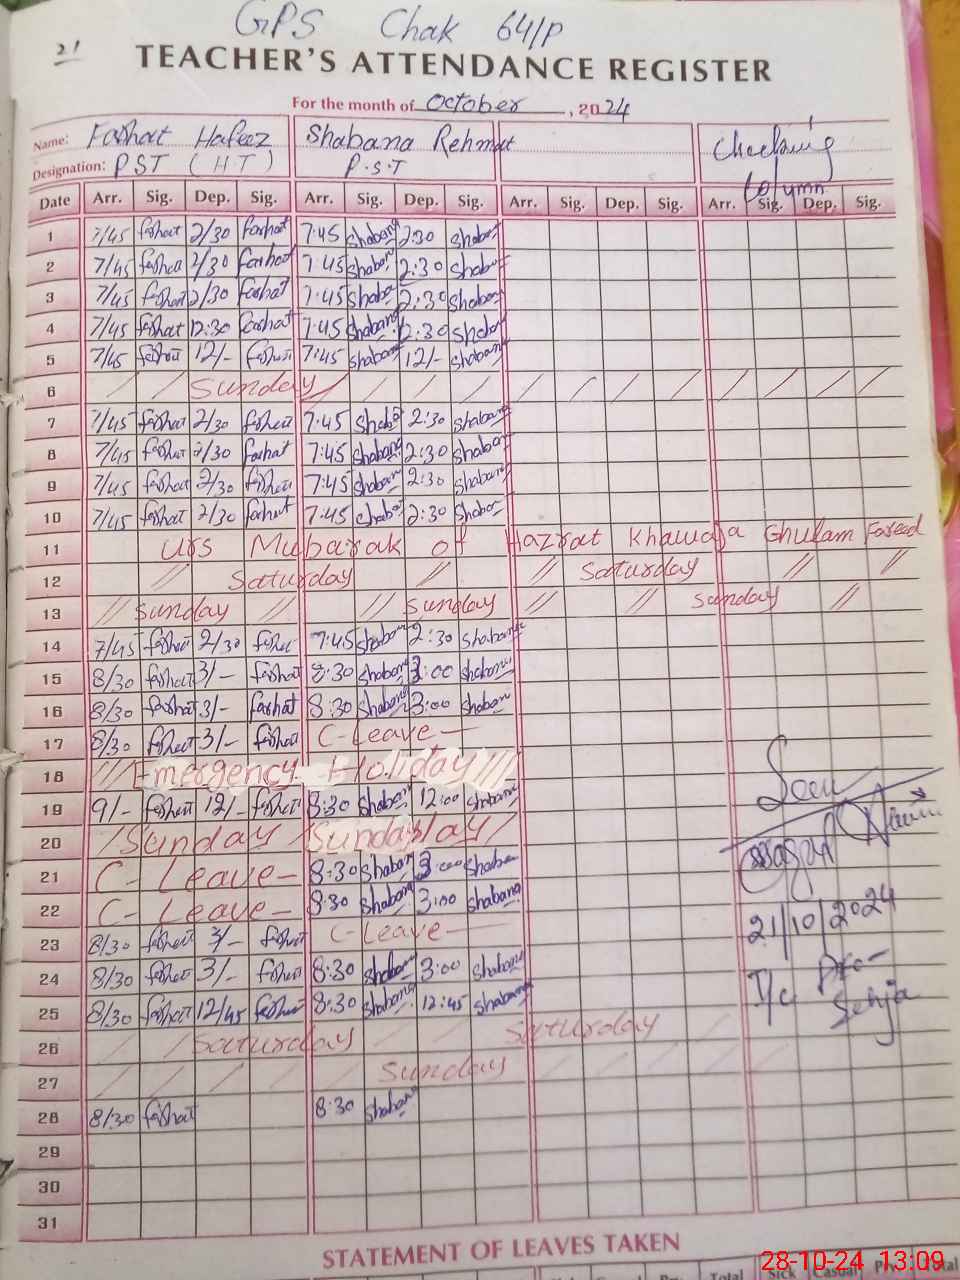 GPS Chak 64/P
21
TEACHER'S ATTENDANCE REGISTER
For the month of October, 2024
Name: Farhat Hafeez Shabana Rehmat Checking Column
Designation: PST (HT) P.S.T
Date Arr. Sig. Dep. Sig. Arr. Sig. Dep. Sig. Arr. Sig. Dep. Sig. Arr. Sig. Dep. Sig.
1 7/45 Farhat 2/30 Farhat 7:45 Shabana 2:30 Shabana
2 7/45 Farhat 2/30 Farhat 7:45 Shabana 2:30 Shabana
3 7/45 Farhat 2/30 Farhat 7:45 Shabana 2:30 Shabana
4 7/45 Farhat 12:30 Farhat 7:45 Shabana 12:30 Shabana
5 7/45 Farhat 12/- Farhat 7:45 Shabana 12/- Shabana
6 / / Sunday / / / / / / / / / / / /
7 7/45 Farhat 2/30 Farhat 7:45 Shaba 2:30 Shabana
8 7/45 Farhat 2/30 Farhat 7:45 Shabana 2:30 Shabana
9 7/45 Farhat 2/30 Farhat 7:45 Shabana 2:30 Shabana
10 7/45 Farhat 2/30 Farhat 7:45 Shaba 2:30 Shabana
11 Urs Mubarak of Hazrat Khawaja Ghulam Fareed
12 // Saturday // // Saturday // //
13 // Sunday // // Sunday // // Sunday //
14 7/45 Farhat 2/30 Farhat 7:45 Shabana 2:30 Shabana
15 8/30 Farhat 3/- Farhat 8:30 Shabana 3:00 Shabana
16 8/30 Farhat 3/- Farhat 8:30 Shabana 3:00 Shabana
17 8/30 Farhat 3/- Farhat C-Leave-
18 /// Emergency Holiday ///
19 9/- Farhat 12/- Farhat 8:30 Shabana 12:00 Shabana
20 / Sunday / Sunday /
21 C-Leave- 8:30 Shabana 3:00 Shabana
22 C-Leave- 8:30 Shabana 3:00 Shabana
23 8/30 Farhat 3/- Farhat C-Leave-
24 8/30 Farhat 3/- Farhat 8:30 Shabana 3:00 Shabana
25 8/30 Farhat 12/45 Farhat 8:30 Shabana 12:45 Shabana
26 / Saturday / / Saturday / /
27 / / / / / Sunday / / / / /
28 8/30 Farhat 8:30 Shabana
29
30
31
Seen
21/10/2024
I/c
Sehja
STATEMENT OF LEAVES TAKEN
Total Sick Casual Prv. Total
28-10-24 13:09